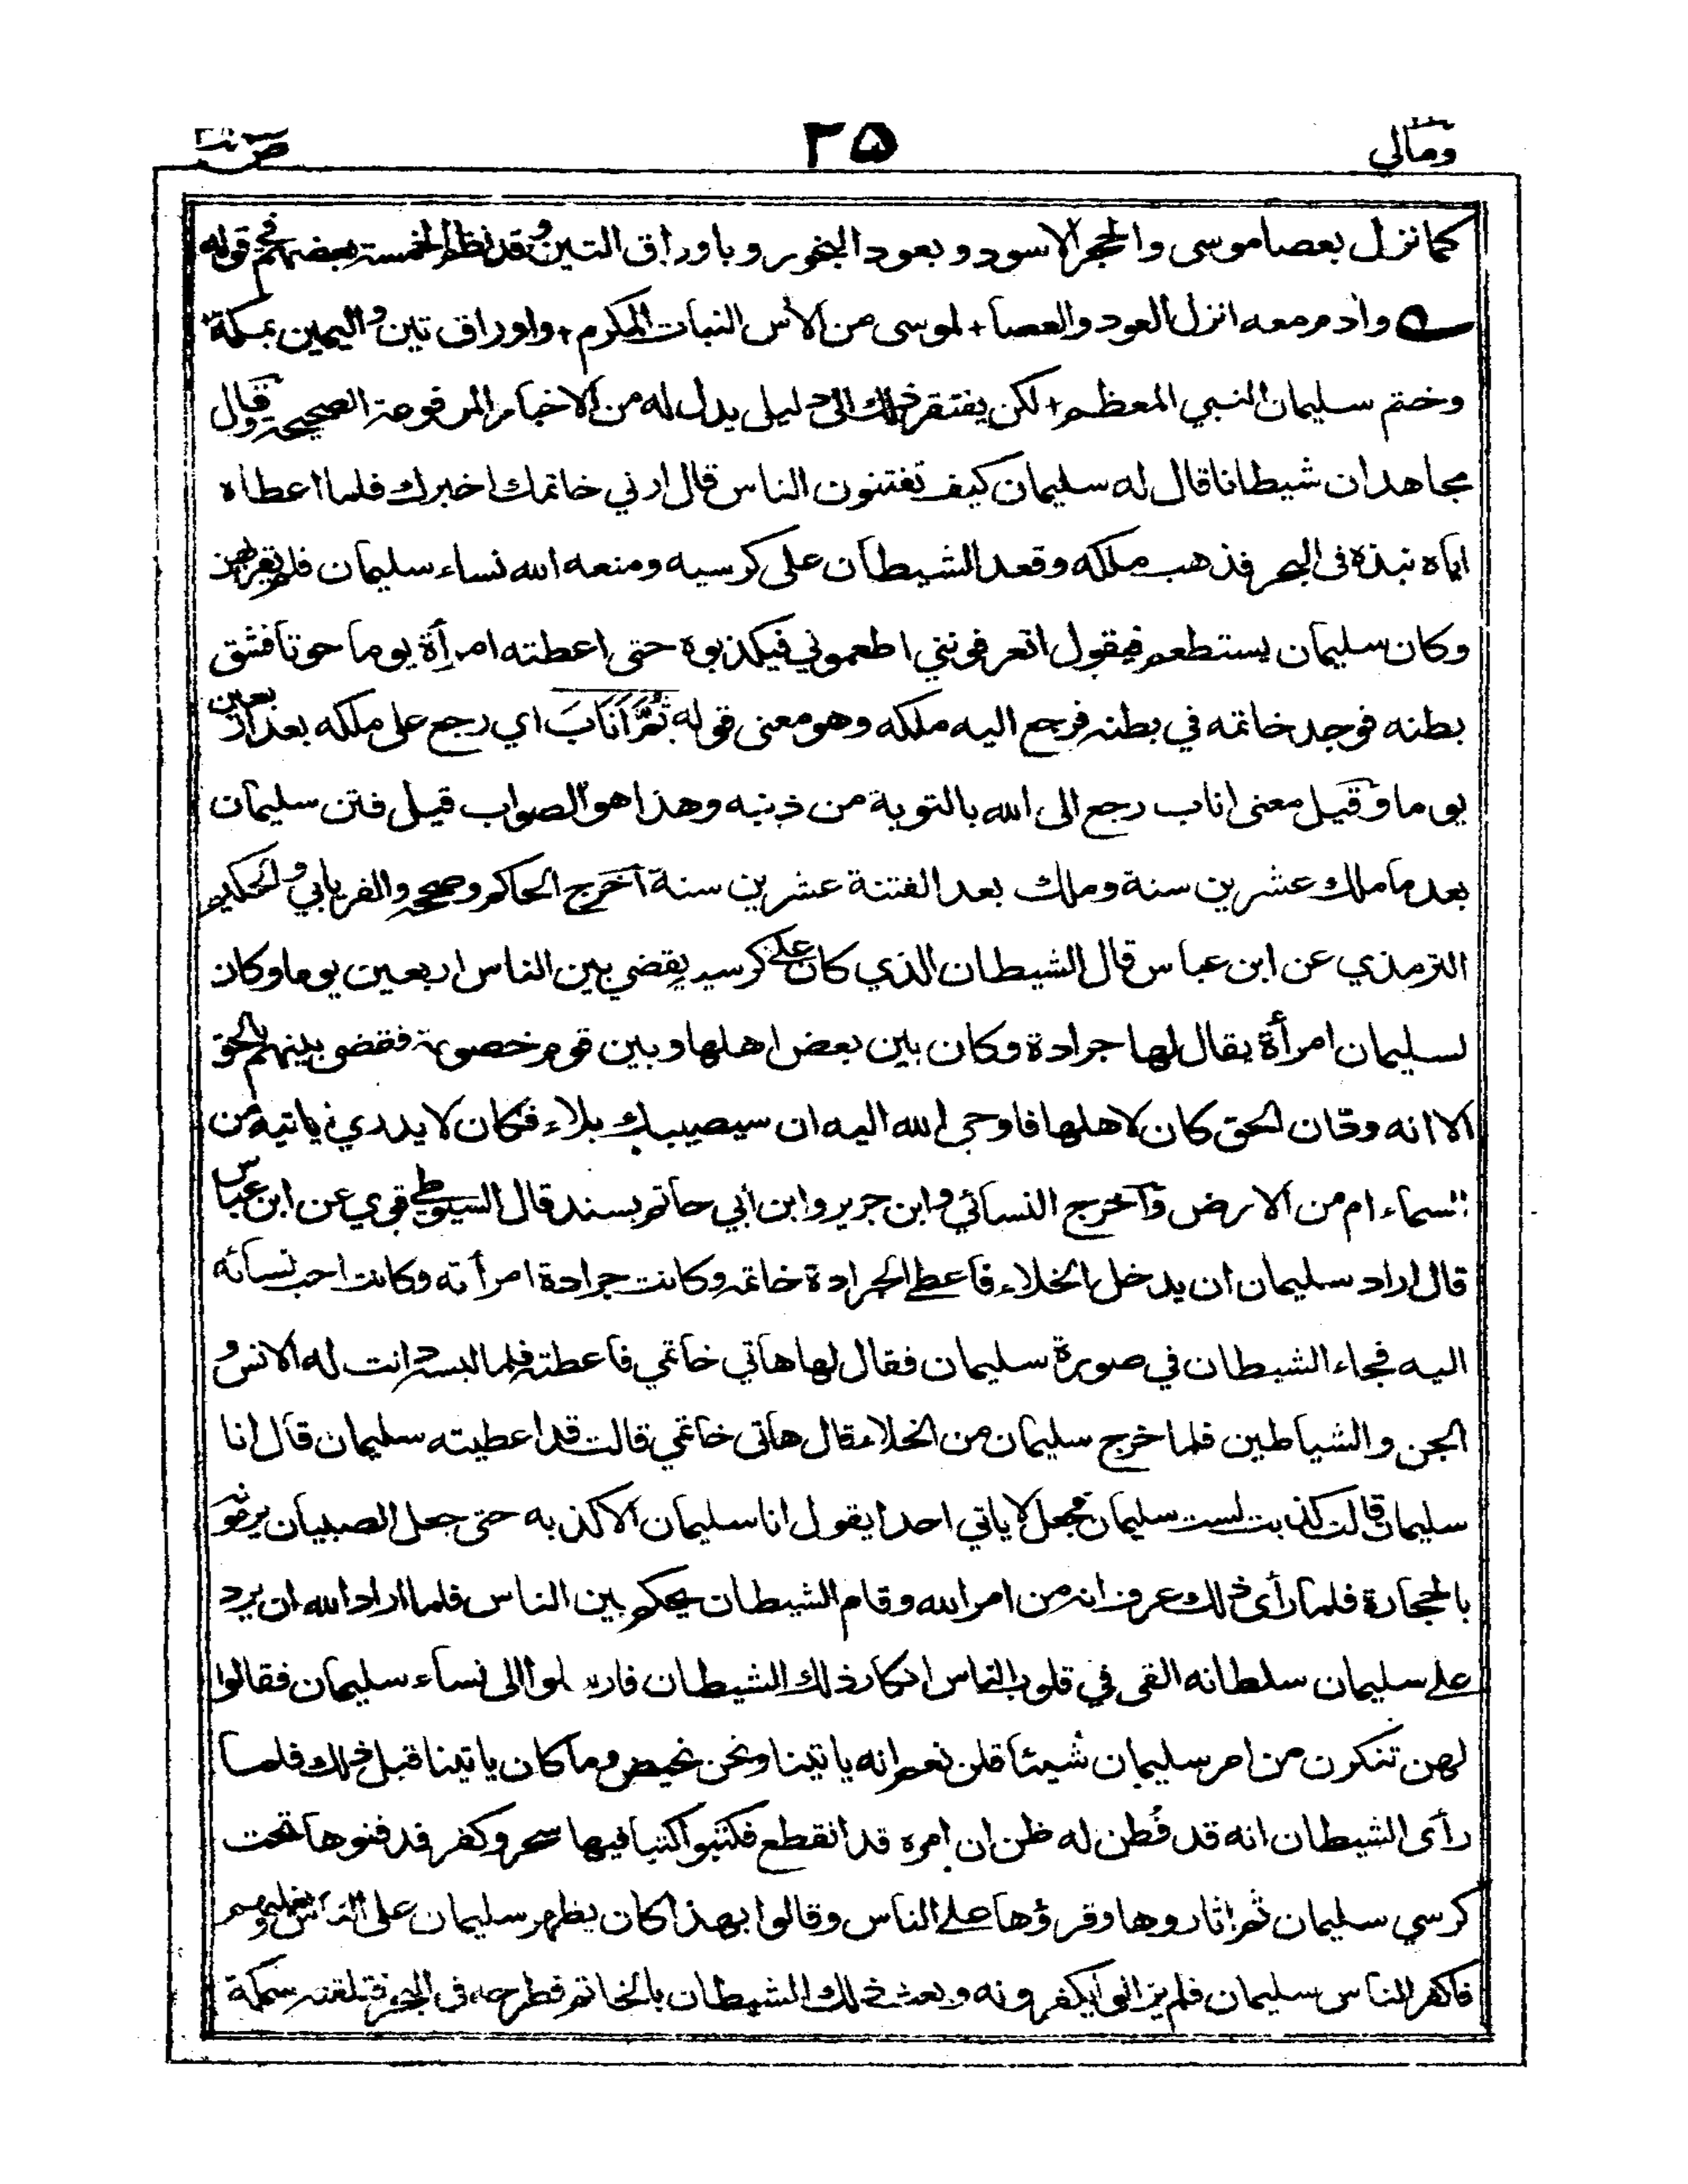 ومالي ٢٥ ص
كما نزل بعصا موسى والحجر الاسود وبعود البخور وباوراق التين وقد نظم الخمسة بعضهم في قوله
وادم معه انزل العود والعصا + لموسى من الاس النبات المكرم + واوراق تين واليمين بمكة +
وختم سليمان النبي المعظم + لكن يفتقر ذلك الى دليل يدل له من الاخبار المرفوعة الصحيحة وقال
مجاهد ان شيطانا قال له سليمان كيف تفتنون الناس قال ارني خاتمك اخبرك فلما اعطاه
اياه نبذه في البحر فذهب ملكه وقعد الشيطان على كرسيه ومنعه الله نساء سليمان فلم يقربهن
وكان سليمان يستطعم فيقول اتعرفونني اطعموني فيكذبوه حتى اعطته امرأة يوما حوتا فشق
بطنه فوجد خاتمه في بطنه فرجع اليه ملكه وهو معنى قوله ثُمَّ اَنَابَ اي رجع على ملكه بعد اربعين
يوما وقيل معنى اناب رجع الى الله بالتوبة من ذنبه وهذا هو الصواب قيل فتن سليمان
بعد ما ملك عشرين سنة وملك بعد الفتنة عشرين سنة اخرج الحاكم وصححه والفريابي والحكيم
الترمذي عن ابن عباس قال الشيطان الذي كان على كرسيه يقضي بين الناس اربعين يوما وكان
لسليمان امرأة يقال لها جرادة وكان بين بعض اهلها وبين قوم خصومة فقضى بينهم بالحق
الا انه ودان الحق كان لاهلها فاوحى الله اليه ان سيصيبك بلاء فكان لا يدري يأتيه من
السماء ام من الارض واخرج النسائي وابن جرير وابن أبي حاتم بسند قال السيوطي قوي عن ابن عباس
قال اراد سليمان ان يدخل الخلاء فاعطى الجرادة خاتمه وكانت جرادة امرأته وكانت احب نسائه
اليه فجاء الشيطان في صورة سليمان فقال لها هاتي خاتمي فاعطته فلما لبسه دانت له الانس و
الجن والشياطين فلما خرج سليمان من الخلاء قال هاتى خاتمي قالت قد اعطيته سليمان قال انا
سليمان قالت كذبت لست سليمان فجعل لا ياتي احدا يقول انا سليمان الا كذبه حتى جعل الصبيان يرمونه
بالحجارة فلما رأى ذلك عرف انه من امر الله وقام الشيطان يحكم بين الناس فلما اراد الله ان يرد
على سليمان سلطانه القى في قلوب الناس انكار ذلك الشيطان فارسلوا الى نساء سليمان فقالوا
لهن تنكرون من امر سليمان شيئا قلن نعم انه ياتينا ونحن نحيض وما كان ياتينا قبل ذلك فلما
رأى الشيطان انه قد فُطن له ظن ان امره قد انقطع فكتبوا كتبا فيها سحر وكفر فدفنوها تحت
كرسي سليمان ثم اثاروها وقرؤها على الناس وقالوا بهذا كان يظهر سليمان على الناس ويغلبهم
فاكفر الناس سليمان فلم يزالوا يكفرونه وبعث ذلك الشيطان بالخاتم فطرحه فى البحر فتلقته سمكة